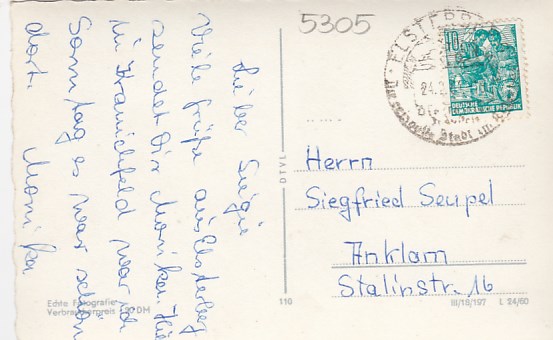 5305
Lieber Siegie
Viele Grüße aus Elsterberg
sendet Dir Monika. Hier
in Kranichfeld war ich
Sonntag es war schön
dort. Monika
ELSTERB
24.2
Die
Stadt im
10
DEUTSCHE
DEMOKRATISCHE REPUBLIK
DTVL
Herrn
Siegfried Seupel
Anklam
Stalinstr. 16
Echte Fotografie
Verbraucherpreis DM
110
III/18/197 L 24/60